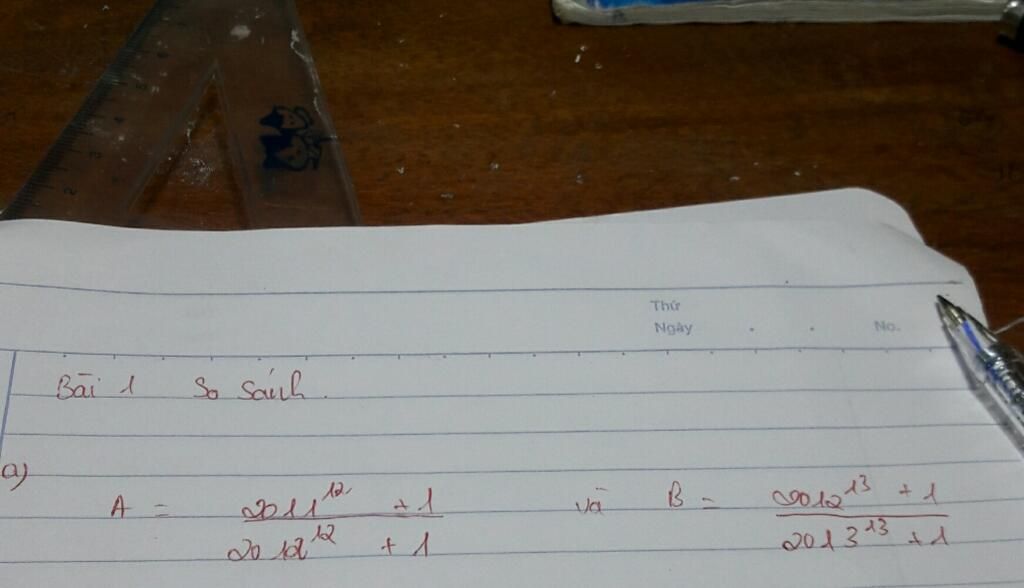 Thứ
Ngày . . No.
Bài 1 So sánh.
a)
A = \frac{2011^{12} + 1}{2012^{12} + 1} và B = \frac{2012^{13} + 1}{2013^{13} + 1}